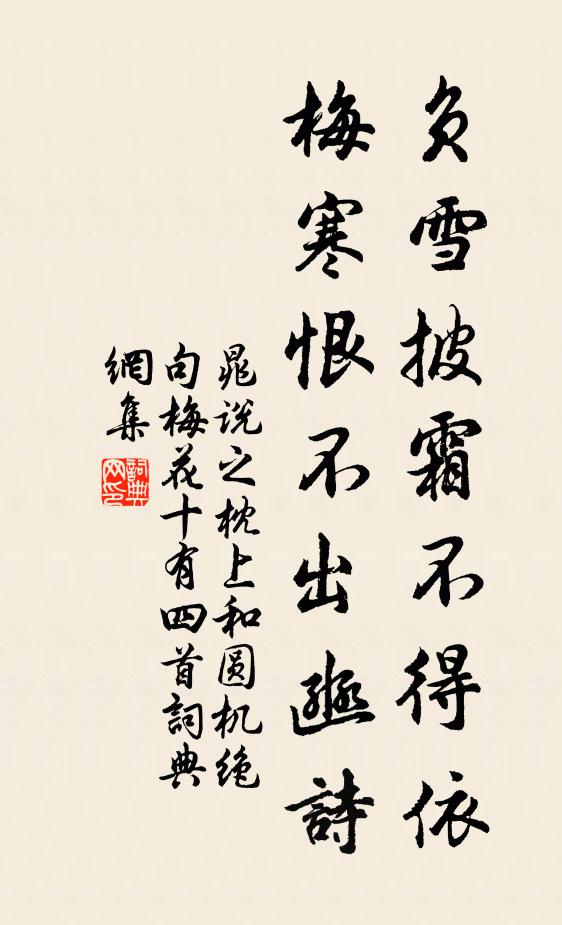 负雪披霜不得依
梅寒恨不出邇诗
晁说之枕上和圆机绝
句梅花十有四首詞典
網集
詞典
网印